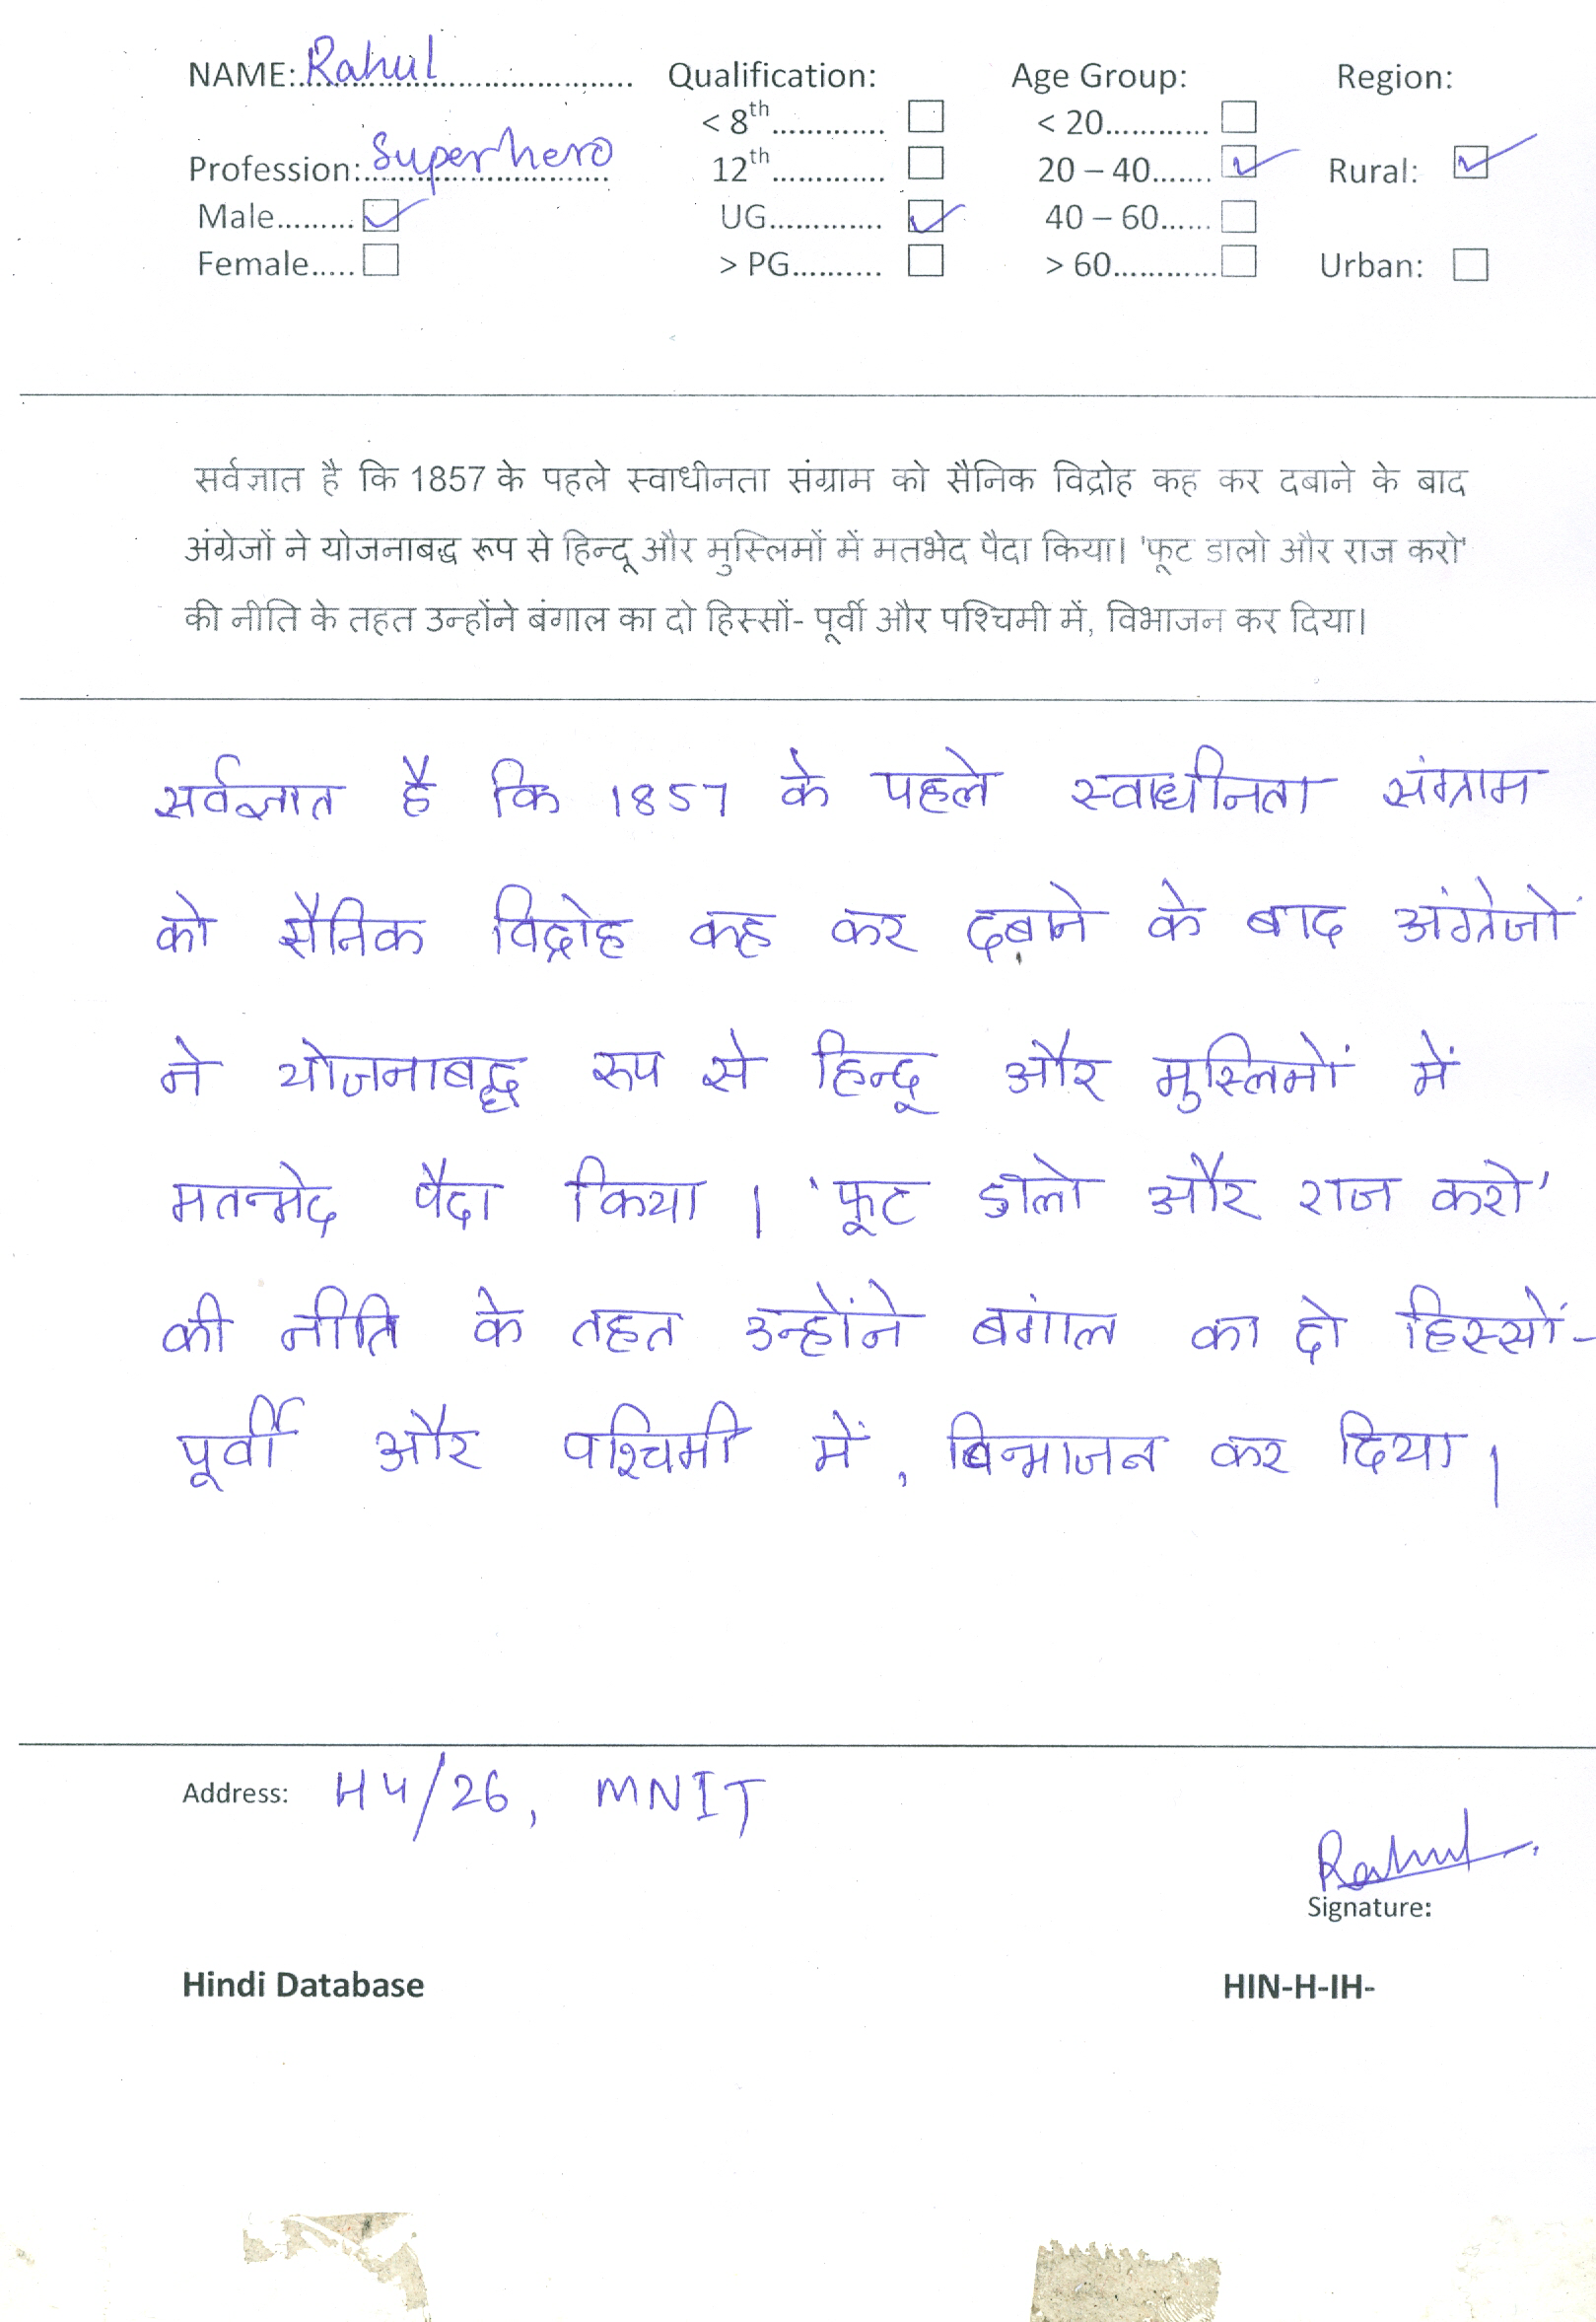 NAME: Rahul Qualification: Age Group: Region:
< 8th ............. < 20............
Profession: Superhero 12th ............. 20 – 40....... Rural:
Male......... UG............. 40 – 60......
Female..... > PG.......... > 60............ Urban:
सर्वज्ञात है कि 1857 के पहले स्वाधीनता संग्राम को सैनिक विद्रोह कह कर दबाने के बाद
अंग्रेजों ने योजनाबद्ध रूप से हिन्दू और मुस्लिमों में मतभेद पैदा किया। 'फूट डालो और राज करो'
की नीति के तहत उन्होंने बंगाल का दो हिस्सों- पूर्वी और पश्चिमी में, विभाजन कर दिया।
सर्वज्ञात है कि 1857 के पहले स्वाधीनता संग्राम
को सैनिक विद्रोह कह कर दबाने के बाद अंग्रेजों
ने योजनाबद्ध रुप से हिन्दू और मुस्लिमों में
मतभेद पैदा किया । 'फूट डालो और राज करो'
की नीति के तहत उन्होंने बंगाल का दो हिस्सों-
पूर्वी और पश्चिमी में, विभाजन कर दिया ।
Address: H4/26, MNIT
Rahul
Signature:
Hindi Database HIN-H-IH-